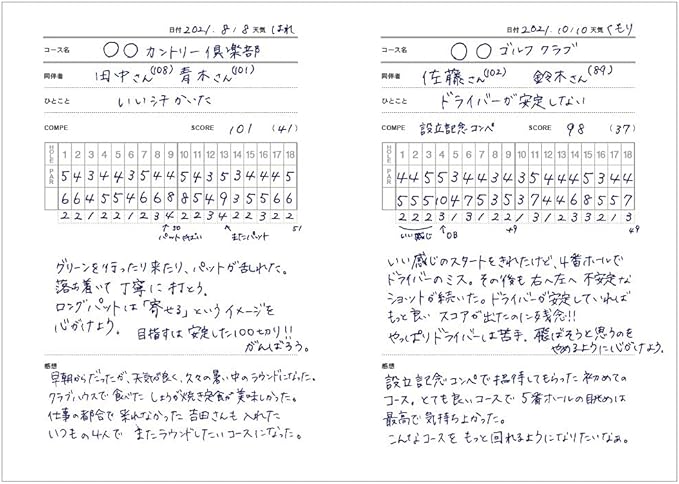 日付 2021.8.8 天気 はれ
コース名 ○○カントリー倶楽部
同伴者 田中さん(108) 青木さん(101)
ひとこと いい汗かいた
COMPE SCORE 101 (41)
HOLE 1 2 3 4 5 6 7 8 9 10 11 12 13 14 15 16 17 18
PAR 5 4 3 4 4 3 4 5 4
6 6 4 5 5 4 6 6 8 8 5 4 9 3 5 5 6 6
51
↑30 パットやばい
↑またパット
グリーンを行ったり来たり、パットが乱れた。
落ち着いて丁寧に打とう。
ロングパットは「寄せる」というイメージを
心がけよう。 目指すは安定した100切り!!
がんばろう。
感想
早朝からだったが、天気が良く、久々の暑い中のラウンドになった。
クラブハウスで食べたしょうが焼き定食が美味しかった。
仕事の都合で来れなかった吉田さんも入れた
いつもの4人でまたラウンドしたいコースになった。
日付 2021.10.10 天気 くもり
コース名 ○○ゴルフクラブ
同伴者 佐藤さん(102) 鈴木さん(89)
ひとこと ドライバーが安定しない
COMPE 設立記念コンペ SCORE 98 (37)
HOLE 1 2 3 4 5 6 7 8 9 10 11 12 13 14 15 16 17 18
PAR 4 4 5 5 3 4
5 5 5 10 4 7 5 3 5 3 7 4 4 6 8 5 5 7
いい感じ
↑OB
49
49
いい感じのスタートをきれたけど、4番ホールで
ドライバーのミス。その後も右へ左へ不安定な
ショットが続いた。ドライバーが安定していれば
もっと良いスコアが出たのに…残念!!
やっぱりドライバーは苦手。飛ばそうと思うのを
やめるように心がけよう。
感想
設立記念コンペで招待してもらった初めての
コース。とても良いコースで5番ホールの眺めは
最高で気持ちよかった。
こんなコースをもっと回れるようになりたいなぁ。